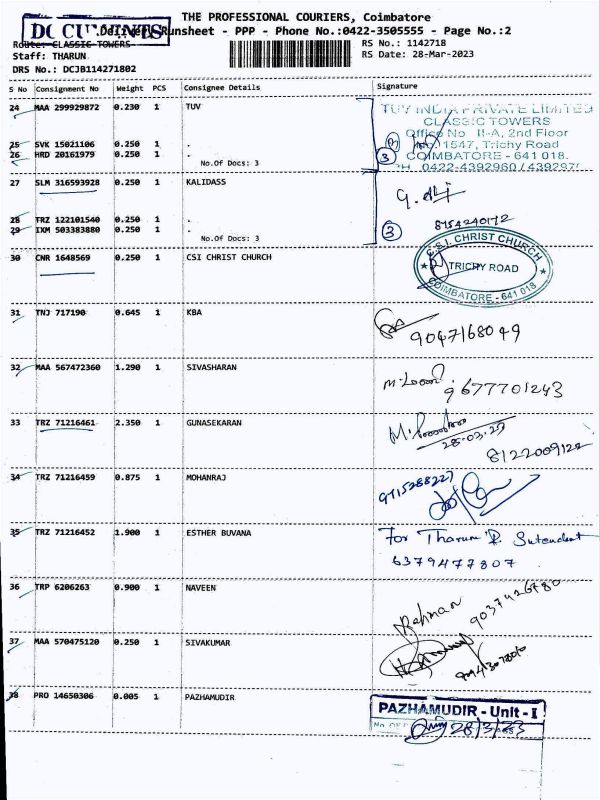 THE PROFESSIONAL COURIERS, Coimbatore
DOCUMENTS
Delivery Runsheet - PPP - Phone No.:0422-3505555 - Page No.:2
Route: CLASSIC TOWERS RS No.: 1142718
Staff: THARUN RS Date: 28-Mar-2023
DRS No.: DCJB114271802
S No Consignment No Weight PCS Consignee Details Signature
24 MAA 299929872 0.230 1 TUV
TUV INDIA PRIVATE LIMITED
CLASSIC TOWERS
Office No II-A, 2nd Floor
25 SVK 15021106 0.250 1 . No. 1547, Trichy Road
26 HRD 20161979 0.250 1 . 3 COIMBATORE - 641 018.
No.Of Docs: 3 PH 0422-4392960 / 439297
27 SLM 316593928 0.250 1 KALIDASS
28 TRZ 122101540 0.250 1 . 8754240172
29 IXM 503383880 0.250 1 . 3
No.Of Docs: 3
30 CNR 1648569 0.250 1 CSI CHRIST CHURCH
C.S.I. CHRIST CHURCH
TRICHY ROAD
COIMBATORE - 641 018
31 TNJ 717190 0.645 1 KBA
9047168049
32 MAA 567472360 1.290 1 SIVASHARAN
9677701243
33 TRZ 71216461 2.350 1 GUNASEKARAN
8122009122
34 TRZ 71216459 0.875 1 MOHANRAJ
9715288227
35 TRZ 71216452 1.900 1 ESTHER BUVANA For Tharum R.
6379477807
36 TRP 6206263 0.900 1 NAVEEN
Rehman 9037426780
37 MAA 570475120 0.250 1 SIVAKUMAR
38 PRO 14650306 0.005 1 PAZHAMUDIR
PAZHAMUDIR - Unit - I
28/3/23